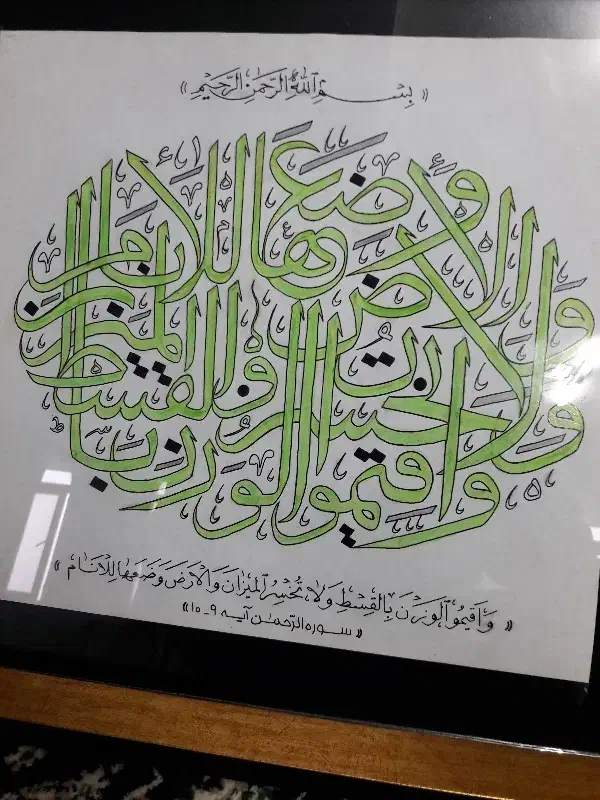 « بِسْمِ اللهِ الرَّحْمٰنِ الرَّحِيْمِ »
وَأَقِيمُوا الْوَزْنَ بِالْقِسْطِ وَلَا تُخْسِرُوا الْمِيزَانَ وَالْأَرْضَ وَضَعَهَا لِلْأَنَامِ
« وَأَقِيمُوا الْوَزْنَ بِالْقِسْطِ وَلَا تُخْسِرُ الْمِيْزَانَ وَالْاَرْضَ وَضَعَهَا لِلْاَنَامِ »
« سوره الرَّحمٰن آيـه ٩-١٠ »